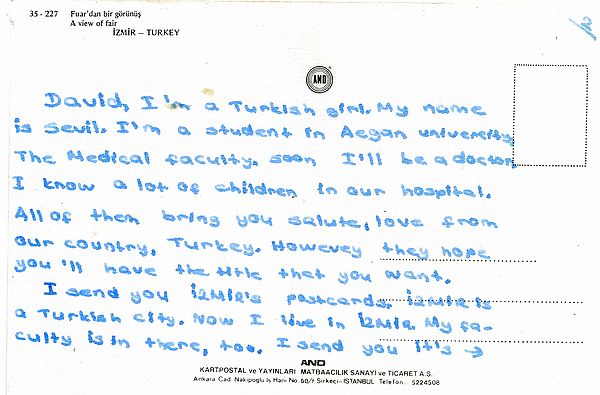 35 - 227 Fuar'dan bir görünüş
A view of fair
İZMİR – TURKEY
2
AND
David, I'm a Turkish girl. My name
is Sevil. I'm a student in Aegan university,
The Medical faculty. soon I'll be a doctor.
I know a lot of children in our hospital.
All of them bring you salute, love from
our country, Turkey. Howevey they hope
you'll have the title that you want.
I send you İZMİR's postcards. İZMİR is
a Turkish city. Now I live in İZMİR. My fa-
culty is in there, too. I send you it's →
AND
KARTPOSTAL ve YAYINLARI MATBAACILIK SANAYİ ve TİCARET A.Ş.
Ankara Cad Nakipoglu İş Hanı No 60/7 Sirkeci - İSTANBUL Telefon: 5224508